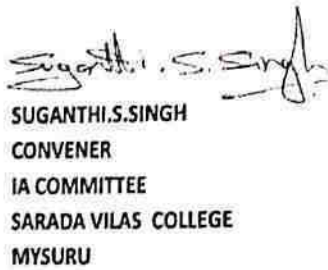 Suganthi.S.Singh
SUGANTHI.S.SINGH
CONVENER
IA COMMITTEE
SARADA VILAS COLLEGE
MYSURU